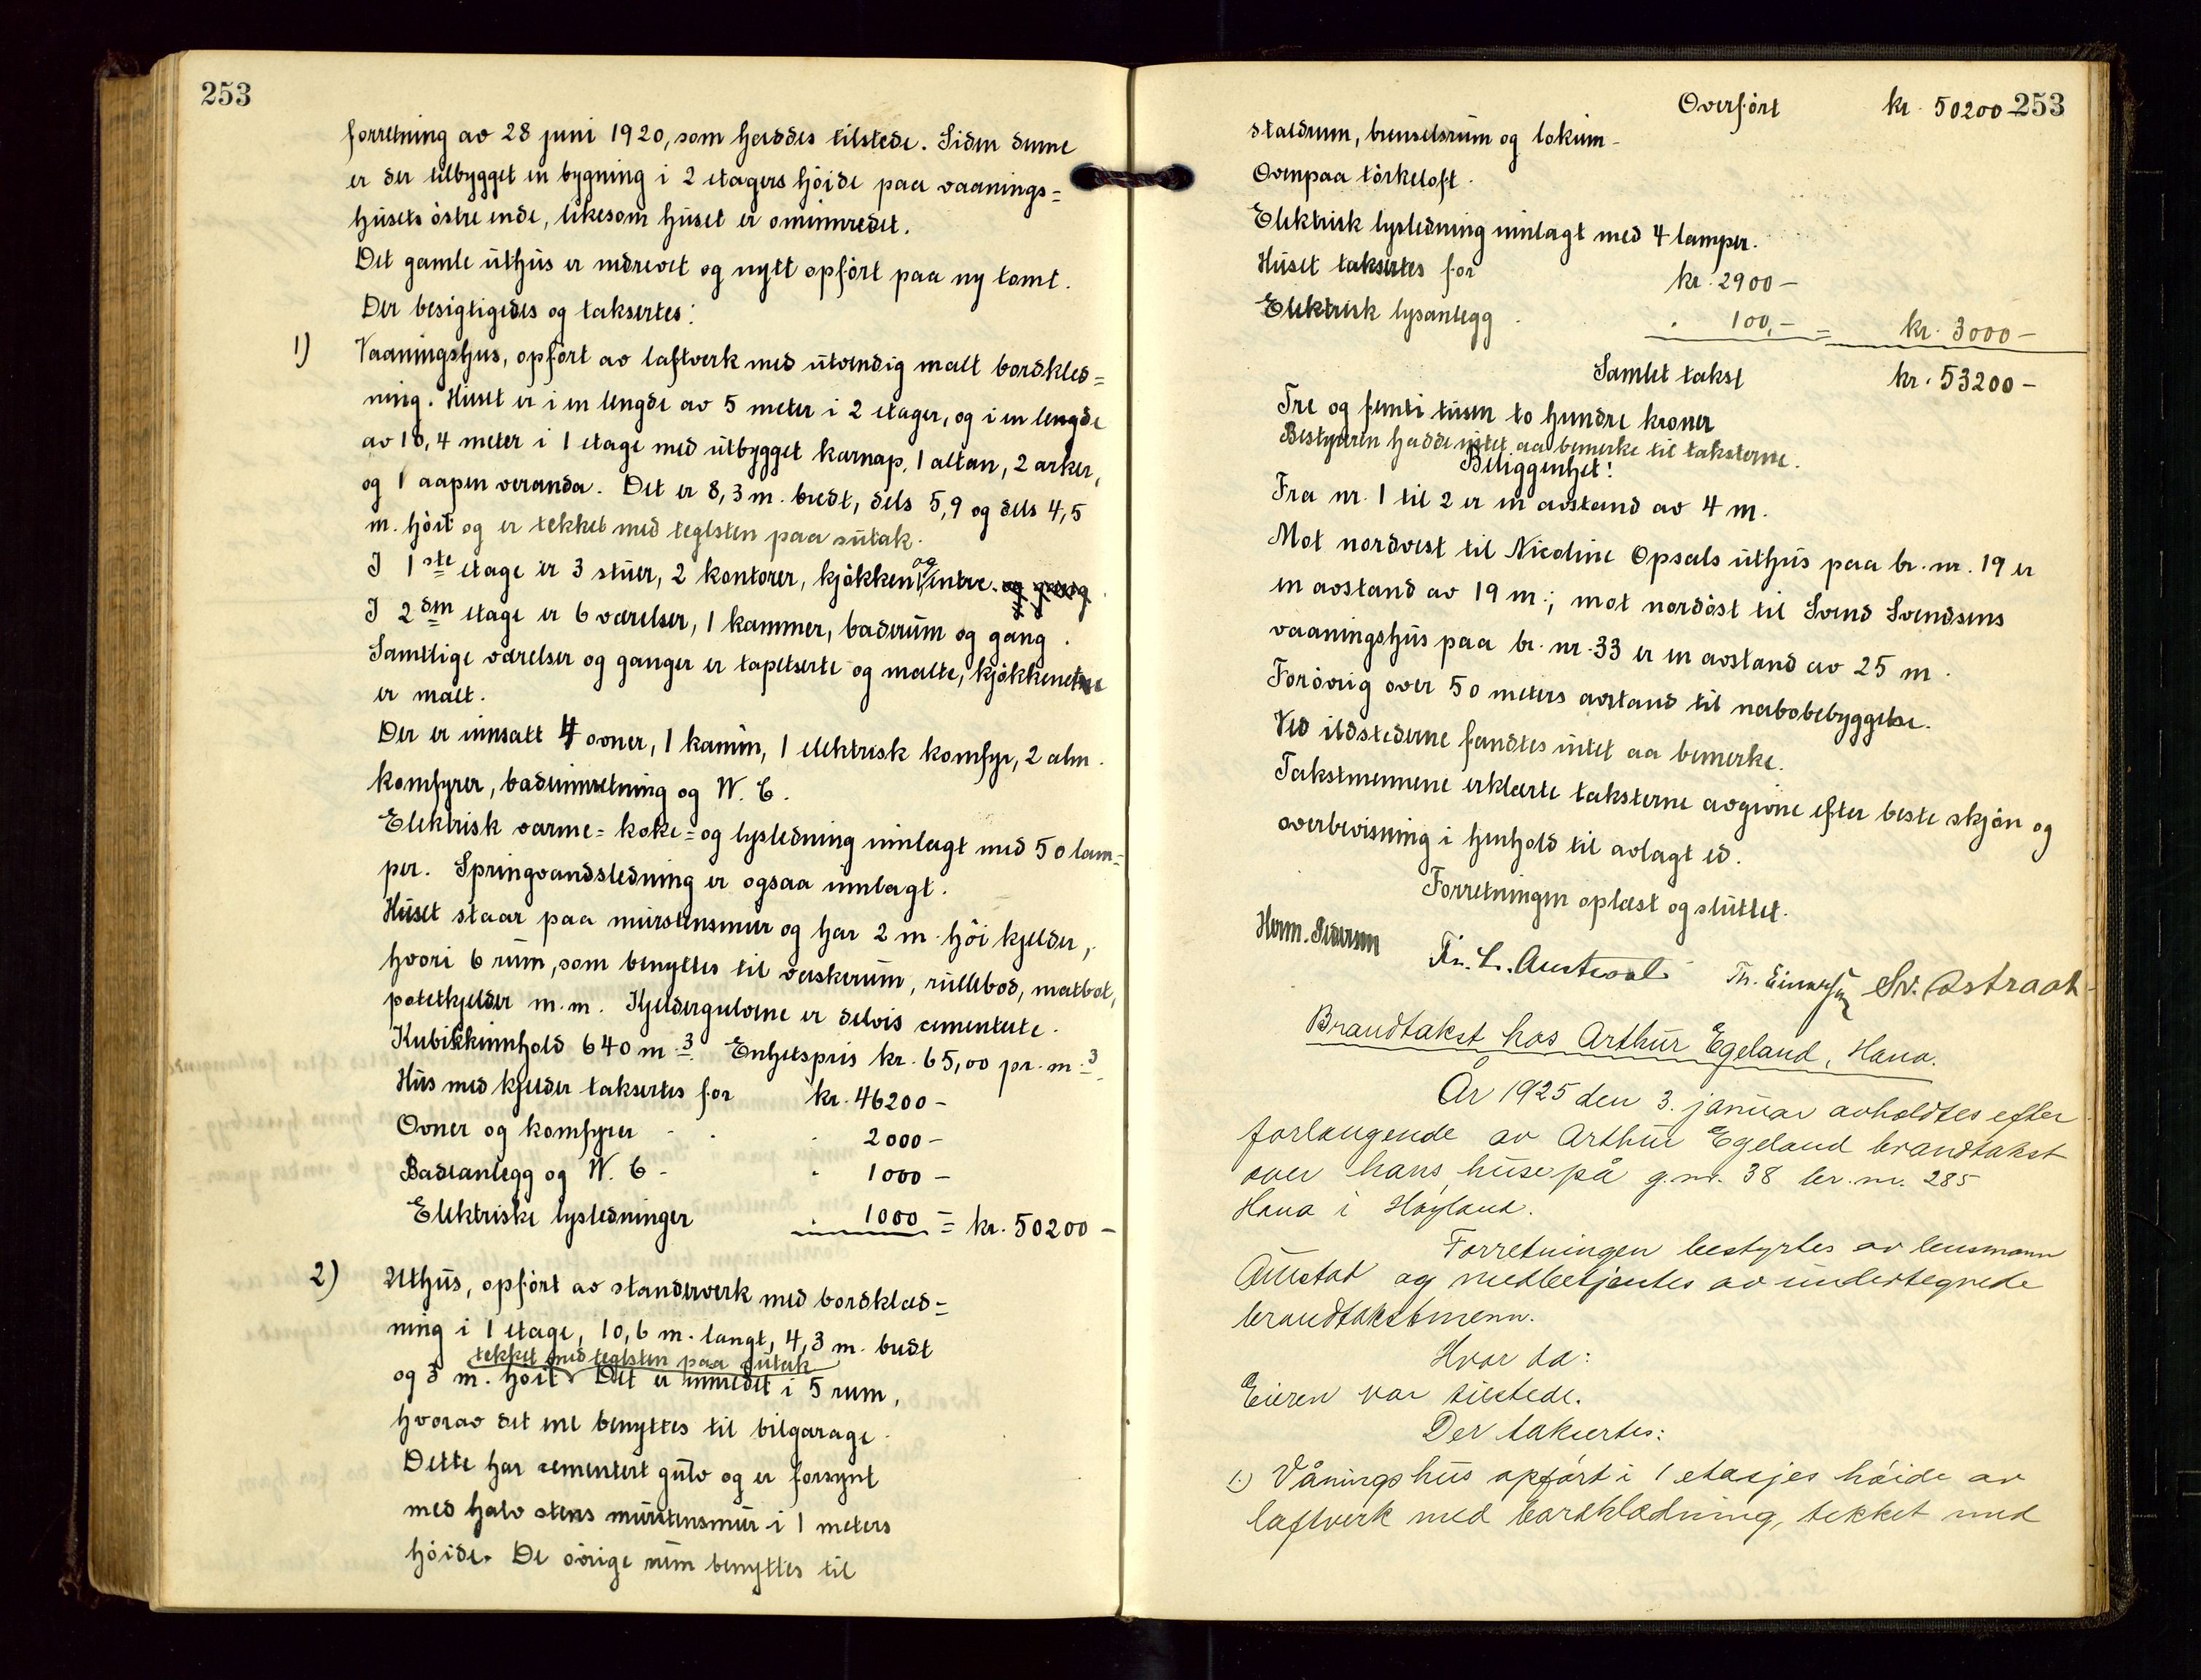 253
forretning av 28 juni 1920, som haddes tilstede. Siden denne
er der tilbygget en bygning i 2 etagers høide paa vaanings=
husets østre ende, likesom huset er ominnredet.
Det gamle uthus er nedrevet og nytt opført paa ny tomt.
Der besigtigedes og taksertes:
1) Vaaningshus, opført av laftverk med utvendig malt bordkled=
ning. Huset er i en lengde av 5 meter i 2 etager, og i en lengde
av 10,4 meter i 1 etage med utbygget karnap, 1 altan, 2 arker,
og 1 aapen veranda. Det er 8,3 m. bredt, dels 5,9 og dels 4,5
m. høit og er tekket med teglsten paa sutak.
I 1ste etage er 3 stuer, 2 kontorer, kjøkken og entre. og gang
I 2den etage er 6 værelser, 1 kammer, baderum og gang.
Samtlige værelser og ganger er tapetserte og malte, kjøkkenet
er malt.
Der er innsatt 4 ovner, 1 kamin, 1 elektrisk komfyr, 2 alm.
komfyrer, badeinnretning og W. C.
Elektrisk varme= koke= og lysledning innlagt med 50 lam=
per. Springvandsledning er ogsaa innlagt.
Huset staar paa murstensmur og har 2 m. høi kjelder,
hvori 6 rum, som benyttes til vaskerum, rullebod, matbod,
potetkjelder m.m. Kjeldergulvene er delvis cementerte.
Kubikkinnhold 640 m.3 Enhetspris kr. 65,00 pr. m.3
Hus med kjelder taksertes for kr. 46200 -
Ovner og komfyrer - . . 2000 -
Badeanlegg og W. C - . 1000 -
Elektriske lysledninger . 1000 = kr. 50200 -
2) Uthus, opført av standerverk med bordklæd=
ning i 1 etage, 10,6 m. langt, 4,3 m. bredt
tekket med teglsten paa sutak
og 3 m. høit. Det er innredet i 5 rum,
hvorav det ene benyttes til bilgarage.
Dette har cementert gulv og er forsynt
med halv stens murstensmur i 1 meters
høide. De øvrige rum benyttes til
Overført kr. 50200 - 253
staldrum, brenselsrum og lokum -
Ovenpaa tørkeloft.
Elektrisk lysledning innlagt med 4 lamper.
Huset taksertes for kr. 2900 -
Elektrisk lysanlegg . . 100,- = kr. 3000 -
Samlet takst kr. 53200 -
Tre og femti tusen to hundre kroner
Bestyreren hadde intet aa bemerke til taksterne.
Beliggenhet:
Fra nr. 1 til 2 er en avstand av 4 m.
Mot nordvest til Nicoline Opsals uthus paa br. nr. 19 er
en avstand av 19 m.; mot nordøst til Svend Svendsens
vaaningshus paa br. nr. 33 er en avstand av 25 m.
Forøvrig over 50 meters avstand til nabobebyggelse.
Ved ildstederne fandtes intet aa bemerke.
Takstmennene erklærte taksterne avgivne efter beste skjøn og
overbevisning i henhold til avlagt ed.
Forretningen oplæst og sluttet.
Herm. Pedersen Fr. L. Austvoll Th. Einarsen Sv. Østraat
Brandtakst hos Arthur Egeland, Hana.
År 1925 den 3. januar avholdtes efter
forlangende av Arthur Egeland brandtakst
over hans huse på g.nr. 38 br. nr. 285
Hana i Høyland.
Forretningen bestyrtes av lensmann
Aurstad og medbetjentes av undertegnede
brandtakstmenn.
Hvor da:
Eieren var tilstede.
Der taksertes:
1.) Våningshus opført i 1 etasjes høide av
laftverk med bordklædning, tekket med